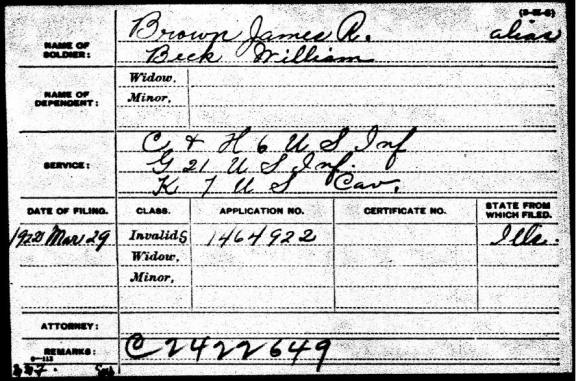 (3-III-6)
NAME OF SOLDIER: Brown James R. alias
Beck William
NAME OF DEPENDENT: Widow,
Minor,
SERVICE: C & H 6 U S Inf
G 21 U S Inf.
K 7 U S Cav.
DATE OF FILING. CLASS. APPLICATION NO. CERTIFICATE NO. STATE FROM WHICH FILED.
Mar 29 Invalid, 1464922 Ills.
Widow,
Minor,
ATTORNEY:
REMARKS: C2422649